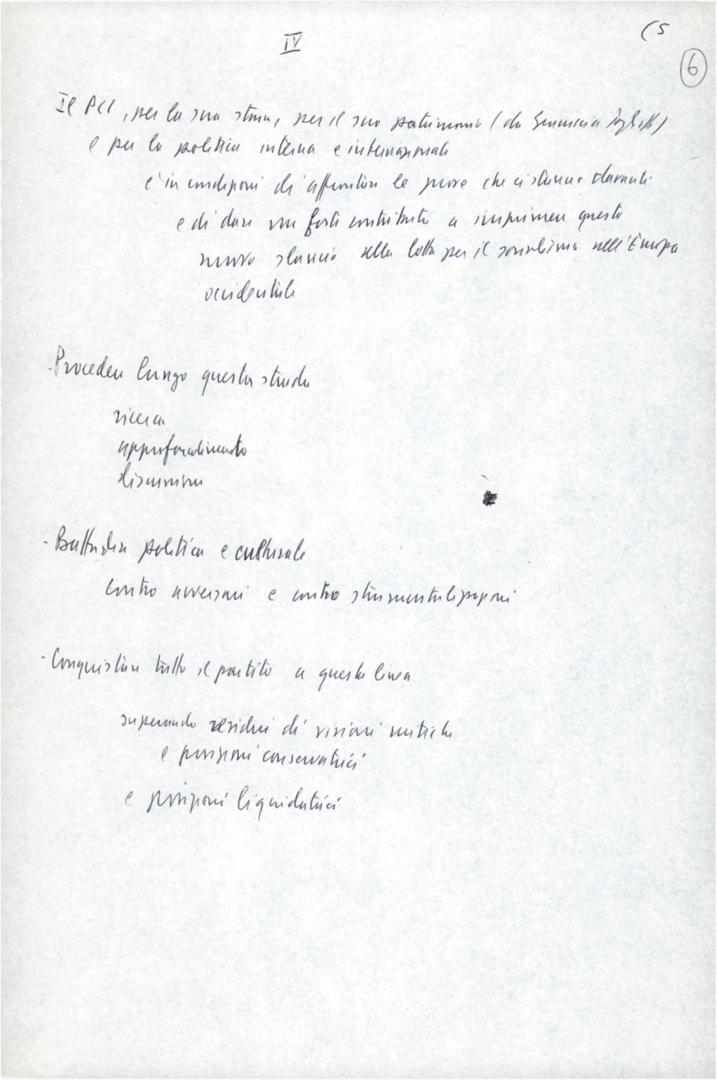 IV
(5
6
Il PCI, per la sua storia, per il suo patrimonio (da Gramsci a Togliatti)
e per la politica interna e internazionale
è in condizioni di affrontare le prove che ci stanno davanti
e di dare un forte contributo a imprimere questo
nuovo slancio alla lotta per il socialismo nell'Europa
occidentale
- Procedere lungo questa strada
ricerca
approfondimento
discussione
- Battaglia politica e culturale
contro avversari e contro
- Conquistare tutto il partito a questa linea
superando residui di visioni mitiche
e posizioni conservatrici
e posizioni liquidatrici